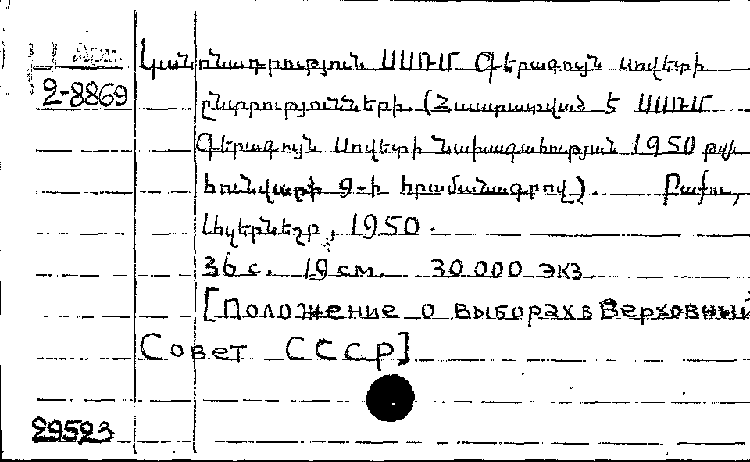 Կանոնադրություն ՍՍՌՄ Գերագույն սովետի
2-8869
ընտրությունների. (Հաստատված է ՍՍՌՄ
Գերագույն Սովետի Նախագահության 1950 թվի
հունվարի 9-ի հրամանագրով). Բաքու,
1950.
36 с. 19 см. 30.000 экз
[Положение о выборах в Верховный
Совет СССР]
29523